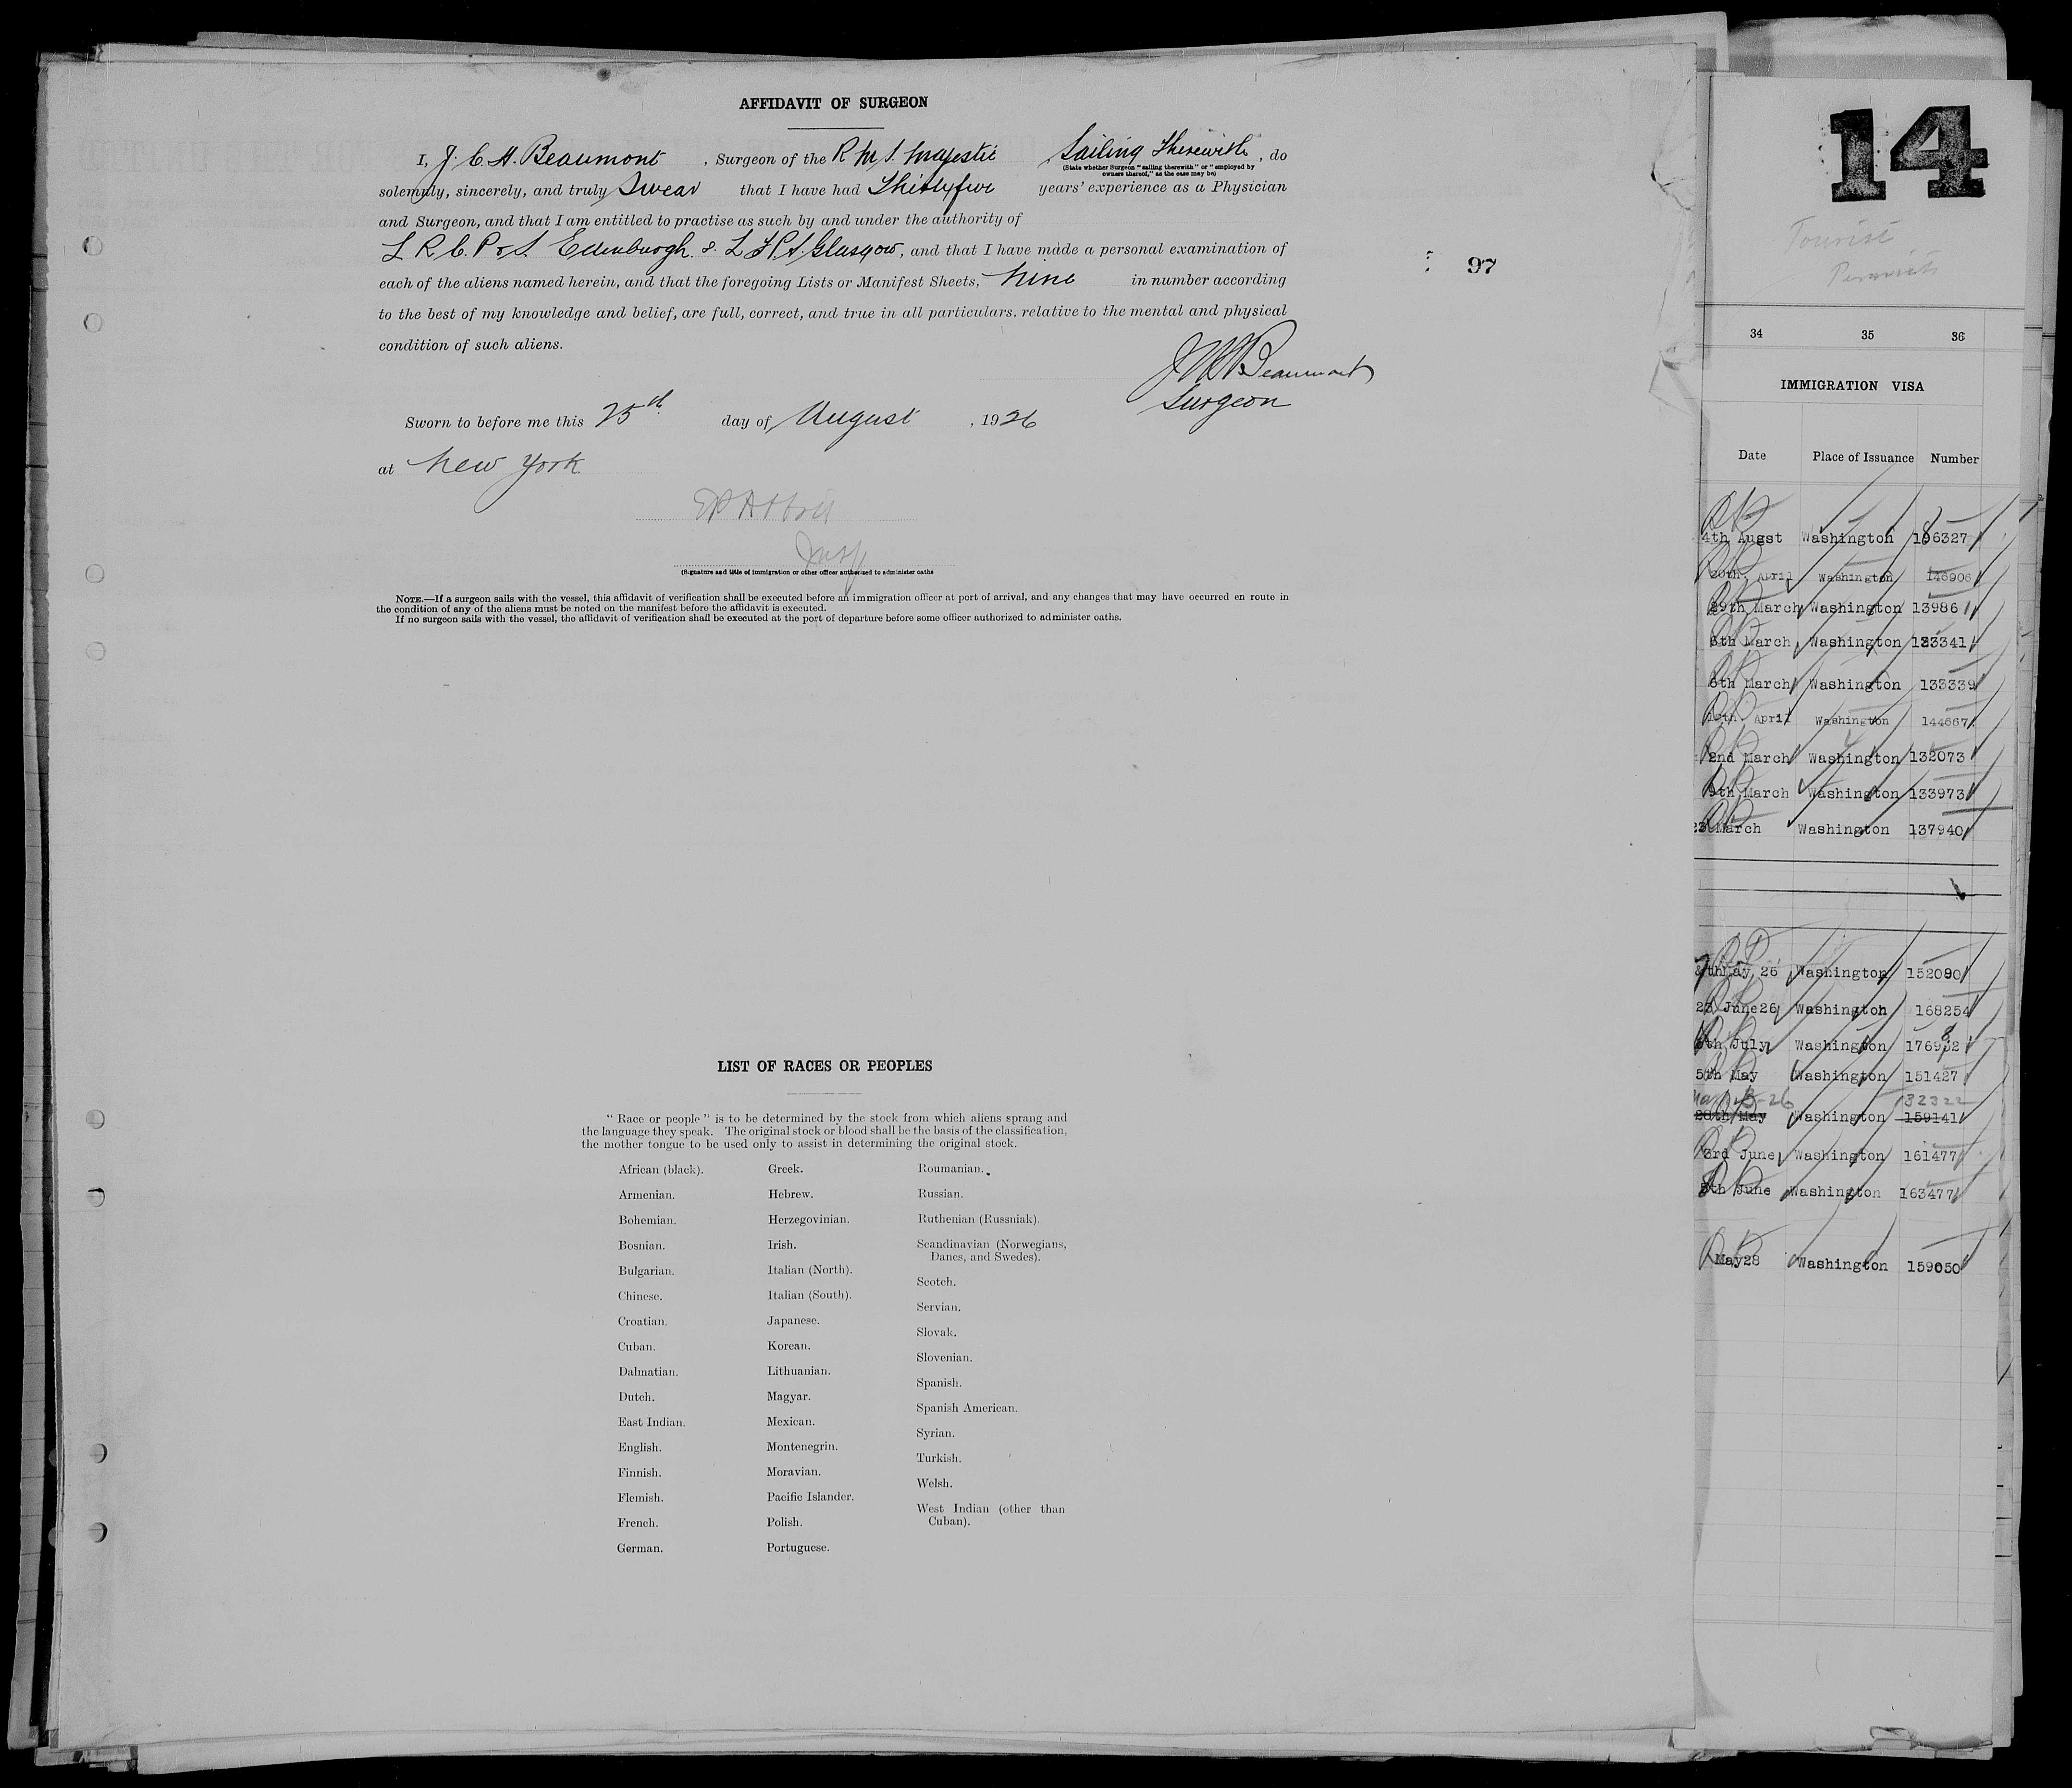 AFFIDAVIT OF SURGEON
I, J. C. H. Beaumont, Surgeon of the R M S. Majestic Sailing Therewith, do
(State whether Surgeon "sailing therewith" or "employed by
owners thereof," as the case may be)
solemnly, sincerely, and truly Swear that I have had Thirtyfive years' experience as a Physician
and Surgeon, and that I am entitled to practise as such by and under the authority of
L R C. P & S. Edinburgh. & L F P S. Glasgow, and that I have made a personal examination of
each of the aliens named herein, and that the foregoing Lists or Manifest Sheets, Nine in number according
to the best of my knowledge and belief, are full, correct, and true in all particulars. relative to the mental and physical
condition of such aliens.
Beaumont
Surgeon
Sworn to before me this 25th day of August, 1926
at New York
Insp
(Signature and title of immigration or other officer authorized to administer oaths
NOTE.—If a surgeon sails with the vessel, this affidavit of verification shall be executed before an immigration officer at port of arrival, and any changes that may have occurred en route in
the condition of any of the aliens must be noted on the manifest before the affidavit is executed.
If no surgeon sails with the vessel, the affidavit of verification shall be executed at the port of departure before some officer authorized to administer oaths.
97
LIST OF RACES OR PEOPLES
"Race or people" is to be determined by the stock from which aliens sprang and
the language they speak. The original stock or blood shall be the basis of the classification,
the mother tongue to be used only to assist in determining the original stock.
African (black).
Armenian.
Bohemian.
Bosnian.
Bulgarian.
Chinese.
Croatian.
Cuban.
Dalmatian.
Dutch.
East Indian.
English.
Finnish.
Flemish.
French.
German.
Greek.
Hebrew.
Herzegovinian.
Irish.
Italian (North).
Italian (South).
Japanese.
Korean.
Lithuanian.
Magyar.
Mexican.
Montenegrin.
Moravian.
Pacific Islander.
Polish.
Portuguese.
Roumanian.
Russian.
Ruthenian (Russniak).
Scandinavian (Norwegians,
Danes, and Swedes).
Scotch.
Servian.
Slovak.
Slovenian.
Spanish.
Spanish American.
Syrian.
Turkish.
Welsh.
West Indian (other than
Cuban).
14
Tourist
Permits
34 35 36
IMMIGRATION VISA
Date Place of Issuance Number
4th Augst Washington
April Washington 146906
29th March Washington 139861
6th March Washington 133341
6th March Washington 133339
April Washington 144667
2nd March Washington 132073
9th March Washington 133973
23 March Washington 137940
May 26 Washington 152090
23 June26 Washington 168254
July Washington
5th May Washington 151427
132322
28th May Washington 159141
3rd June Washington 161477
8th June Washington 163477
May28 Washington 159050